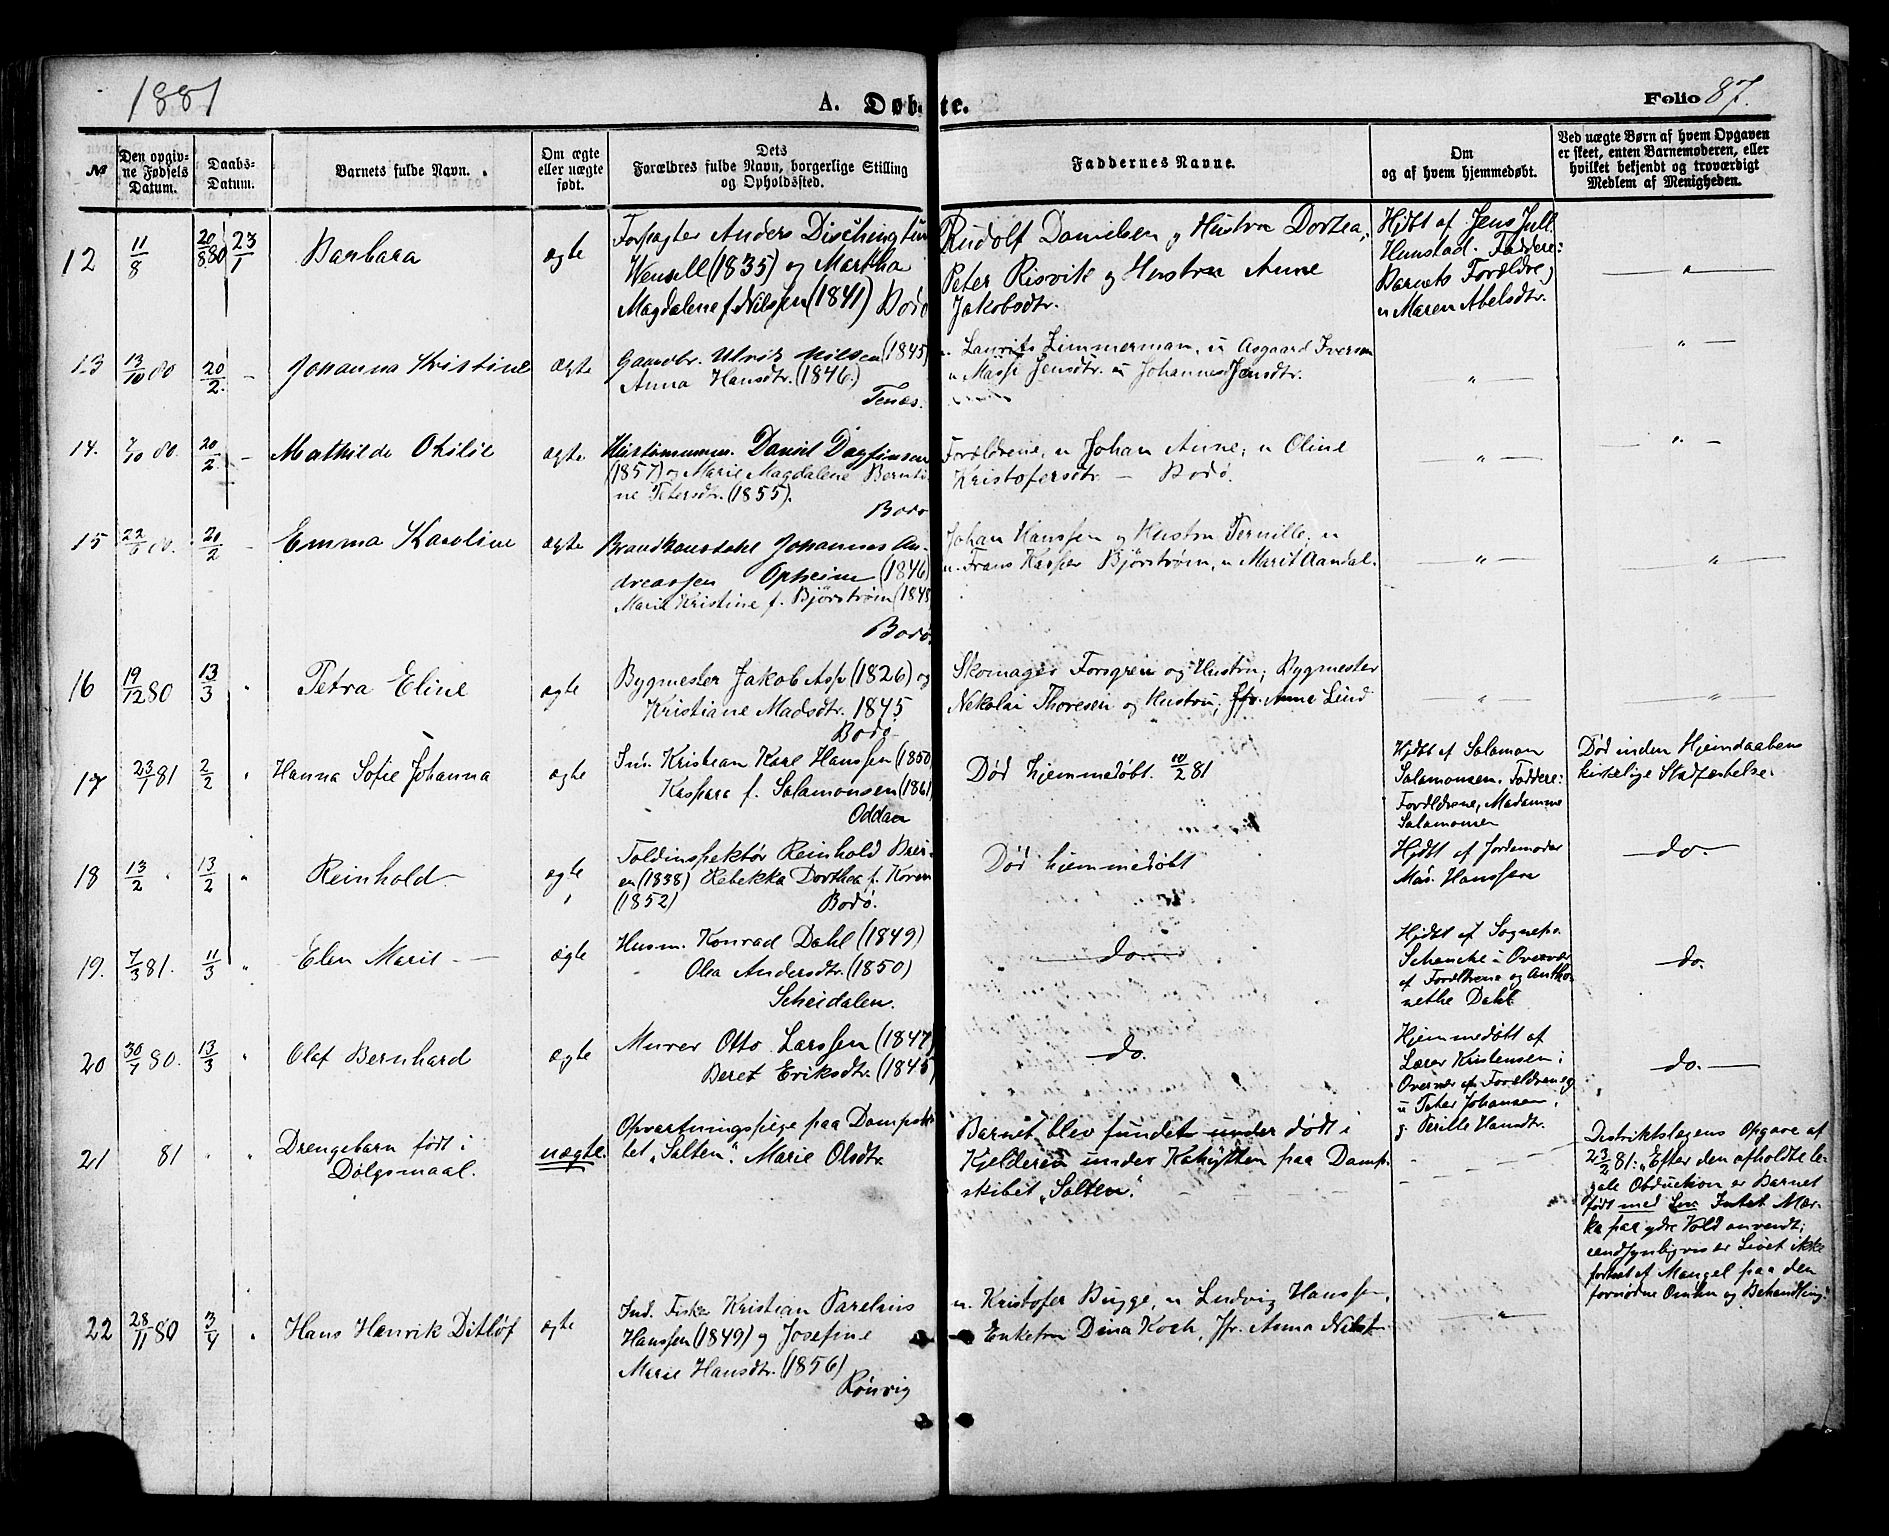 1881
A. Døbte.
Folio 87.
No
Den opgiv-
ne Fødsels
Datum.
Daabs-
Datum.
Barnets fulde Navn.
Om ægte
eller uægte
født.
Dets
Forældres fulde Navn, borgerlige Stilling
og Opholdssted.
Faddernes Navne.
Om
og af hvem hjemmedøbt.
Ved uægte Børn af hvem Opgaven
er skeet, enten Barnemoderen, eller
hvilket bekjendt og troværdigt
Medlem af Menigheden.
12
11/8
20/8 80 23/1
Barbara
ægte
Forpagter Anders
Wensell (1835) og Martha
Magdalene f. Nilsen (1841) Bodø
Rudolf Danielsen og Hustru Dortea;
Peter Risvik og Hustru Anne
Jakobsdtr.
Hjdt af Jens Jull
Hunstad. Faddere:
Barnets Forældre og
u Maren Abelsdtr.
— " —
13
13/10 80
20/2 —
Johanna Kristine
ægte
Gaardbr. Ulrik Nilsen (1845)
Anna Hansdtr. (1846)
Tenæs.
u. Laurits Zimmerman, u Asgaard Iversen
u Massi Jensdtr. u Johanna Jensdtr.
— " —
— " —
14.
7/10 80.
20/2 —
Mathilde Otilie
ægte
Daniel Dagfinsen
(1857) og Marie Magdalene Bernti-
ne Petersdtr. (1855).
Bodø
Forældrene, u Johan Anne, u Oline
Kristofersdtr. — Bodø.
— " —
— " —
15
20/2 —
Emma Karoline
ægte
Brandkonstabel Johannes An-
dreassen Opheim (1846)
Marie Kristine f. Bjørstrøm (1848)
Bodø.
Johan Hanssen og Hustru Pernille, u
u. Frans Kasper Bjørstrøm, u Marit Aandal.
— " —
— " —
16
19/12 80
13/3 "
Petra Eline
ægte
Bygmester Jakob Asp (1826) og
Kristiane Madsdtr. 1845
Bodø
Skomager Forsgren og Hustru; Bygmester
Nikolai Thoresen og Hustru; Jfr. Anne Lind
— " —
— " —
17
23/1 81
2/2 "
Hanna Sofie Johanna
ægte
Ind. Kristian Karl Hanssen (1850)
Kaspara f. Salamonsen (1861)
Oddan
Død hjemmedøbt. 10/2 81
Hjdt af Salamon
Salamonsen. Faddere:
Forældrene, Madamme
Salamonsen
Død inden Hjemdaabens
kirkelige Stadfæstelse.
18
13/2 "
13/2 "
Reinhold
ægte
Toldinspektør Reinhold Brei-
en (1838) Rebekka Dorthea f. Koren
(1852) Bodø.
Død hjemmedøbt
Hjdt af Jordemoder
Mad. Hanssen
— do. —
19.
7/3 81.
11/3 "
Elen Marie —
ægte
Husm. Konrad Dahl (1849)
Olea Andersdtr. (1850)
Scheidalen.
— do —
Hjdt af Sognepr.
Schanche i Overvær
af Forældrene og Antho-
nethe Dahl
— do.
20
30/7 80.
13/3 "
Olaf Bernhard
ægte
Murer Otto Larssen (1847)
Beret Eriksdtr. (1845)
— do.
Hjemmedøbt af
Lærer Kristensen i
Overvær af Forældrene og
u Peter Johansen,
g. Perille Hansdtr.
— do. —
21
81
" "
Drengebarn født i
Dølgsmaal.
uægte.
Opvartningspige paa Dampski-
bet "Salten". Marie Olsdtr.
Barnet blev fundet under dødt i
Kjelderen under Kahytten paa Damp-
skibet "Salten".
— —
Distriktslægens Opgave af
23/2 81: "Efter den afholdte le-
gale Obduction er Barnet
født med Liv. Intet Mær-
ke paa ydre Vold anvendt;
sandsynligvis er Livet ikke
fortsat af Mangel paa den
fornødne Omhu og Behandling."
22
28/11 80
3/4 "
Hans Henrik Ditløf
ægte
Ind. Fisker Kristian Parelius
Hanssen (1849) og Josefine
Marie Hansdtr. (1856)
Rønvig
u. Kristofer Bugge, u Ludvig Hanssen,
Enkefru Dina Koch, Jfr. Anna
— " —